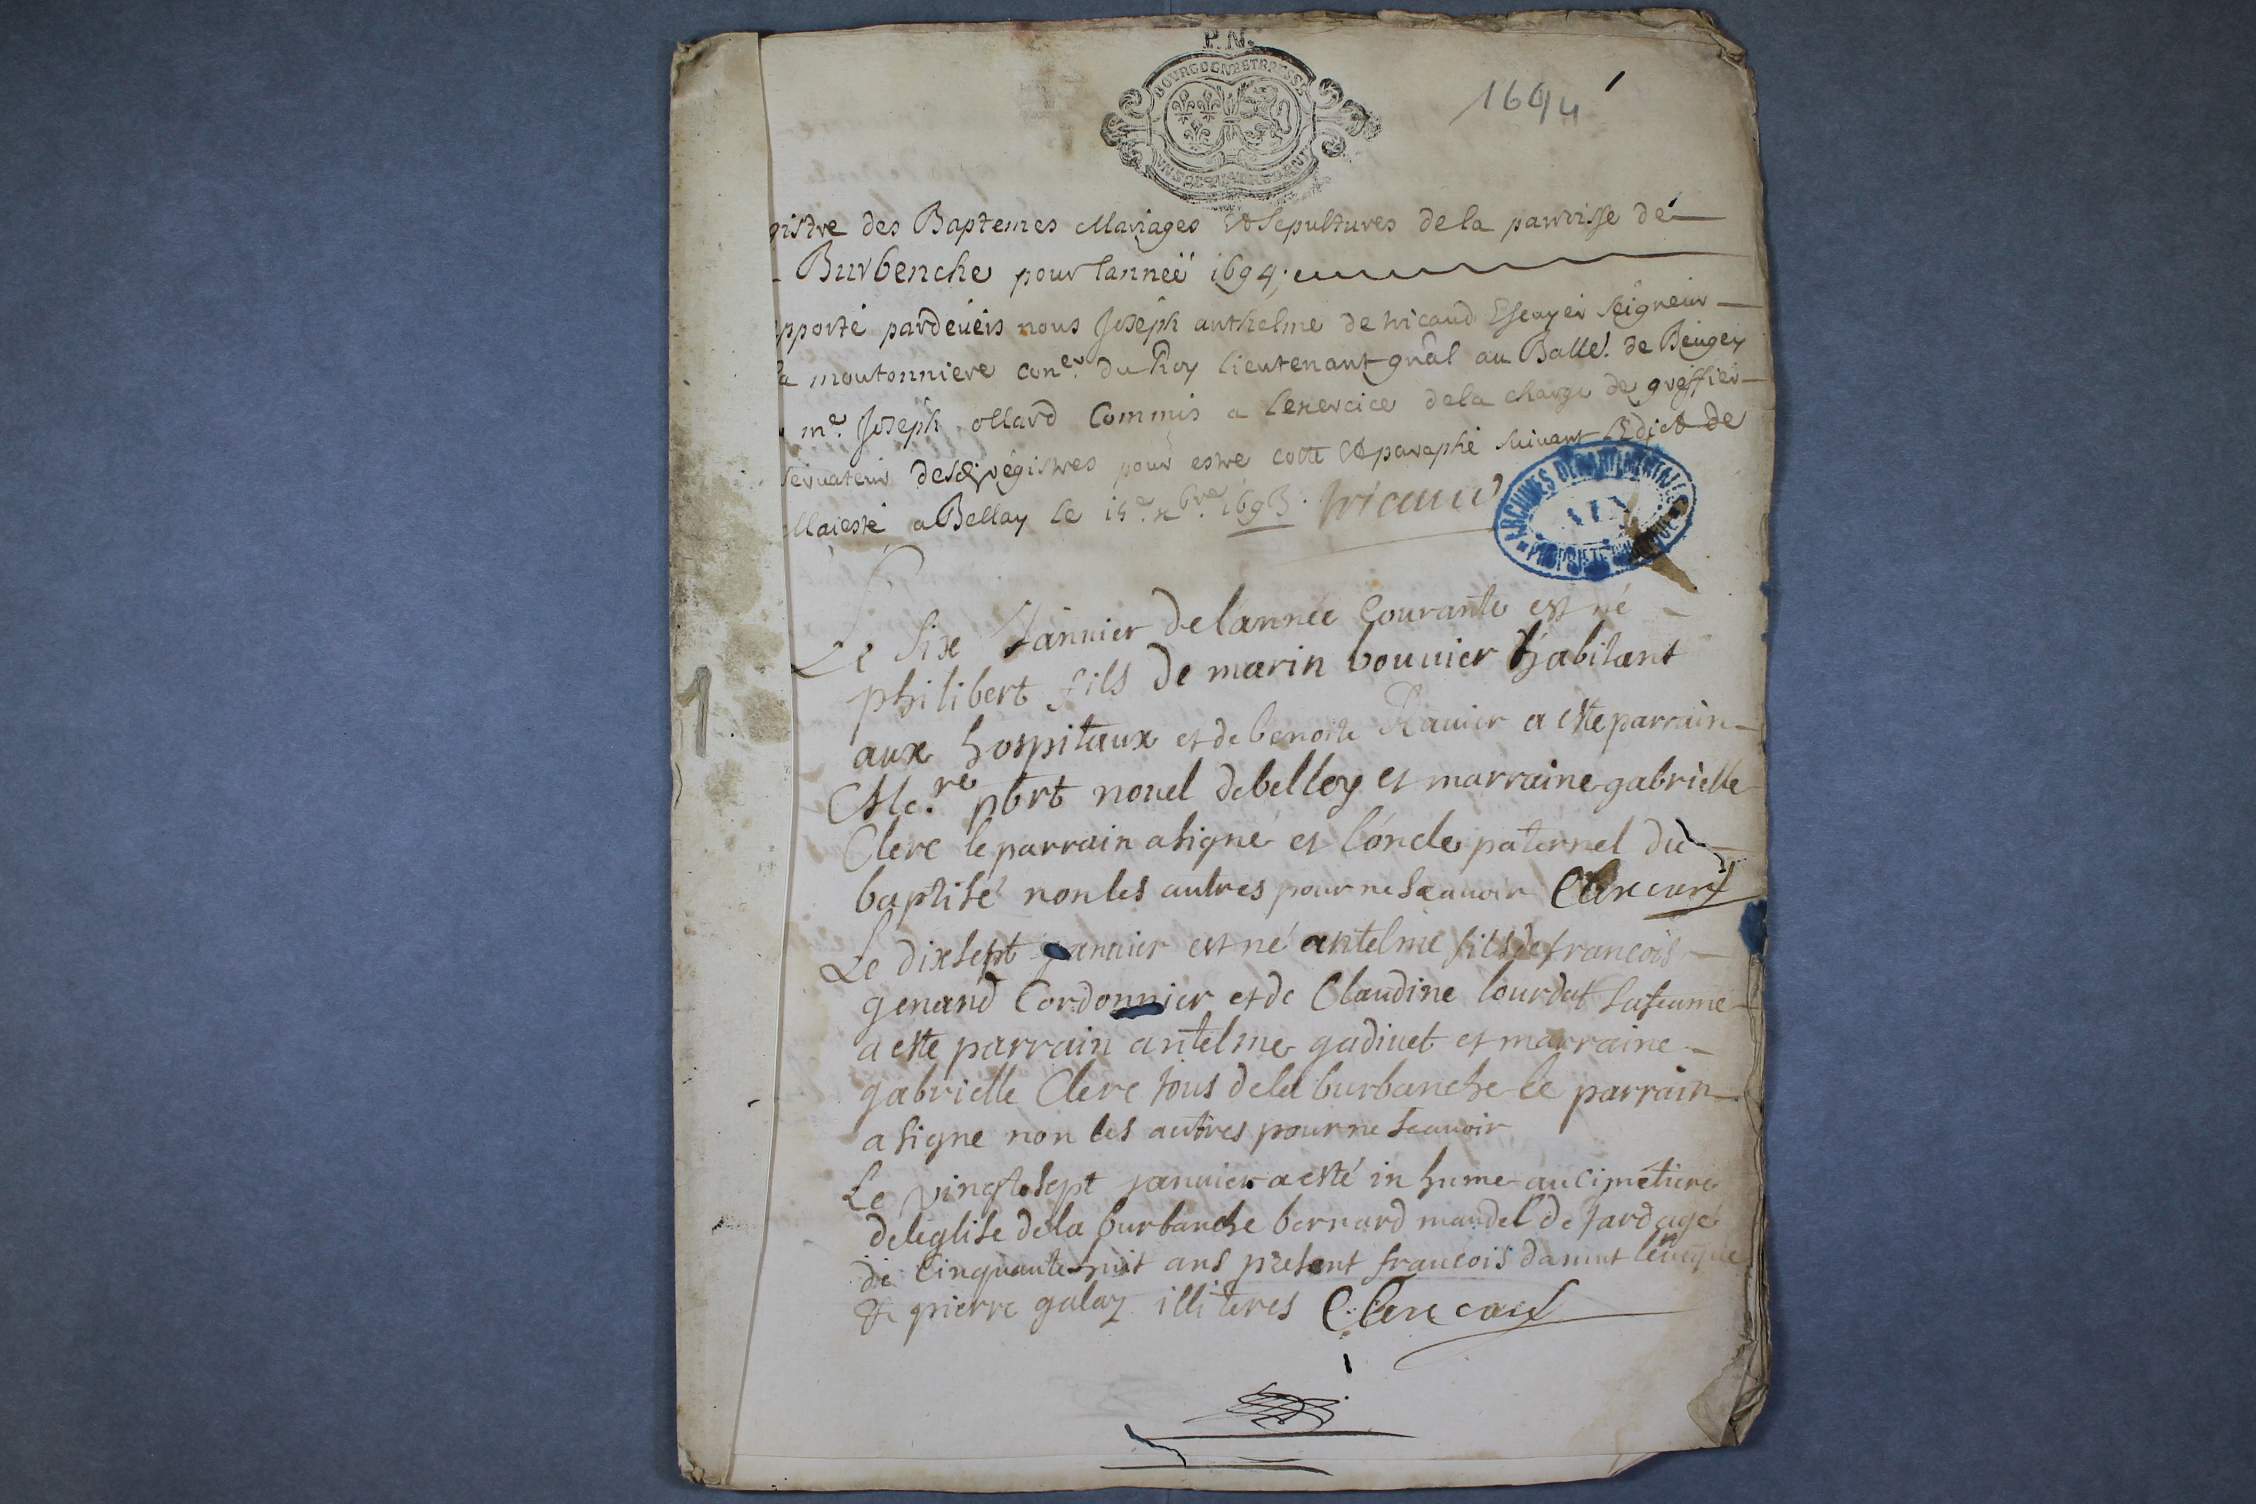 P.N.
BOVRGOGNE ET BRESSE
1694
gistre des Baptemes Mariages Et Sepultures de la parroisse de
Burbenche pour lanneé 1694.
pporté pardeuers nous Joseph anthelme de tricaud Escuyer Seigneur
la moutonniere Con.er du Roy lieutenant gnâl au Balle. de Beugey
me. Joseph ollard Commis a lexercice dela charge de greffier
seruateur desd. régistres pour estre cotté Et paraphé suiuant LEdict de
Maiesté a Bellay le 15.e xbre. 1693. tricaud
ARCHIVES DÉPARTEMENTALES
AIN
PROPRIÉTÉ PUBLIQUE
Le Six Januier de lannee Courante est né
philibert fils de marin bouuier habitant
aux hospitaux et de benoite Rauier a este parrain
Me.re pbrt nouel de belley et marraine gabrielle
Clerc le parrain a signé et l'oncle paternel du
baptisé non les autres pour ne scauoir Clerc curé
Le dix sept januier est né antelme fils de francois
genand Cordonnier et de Claudine lourdat sa feame
a este parrain antelme gadiuet et marraine
gabrielle Clerc tous de la burbanche le parrain
a signe non les autres pour ne scauoir
Le vingt sept januier a esté in humé au cimetiere
de leglise de la burbanche bernard mandel de jard agé
de Cinquante huit ans present francois
& pierre galay illiteres Clerc curé
1